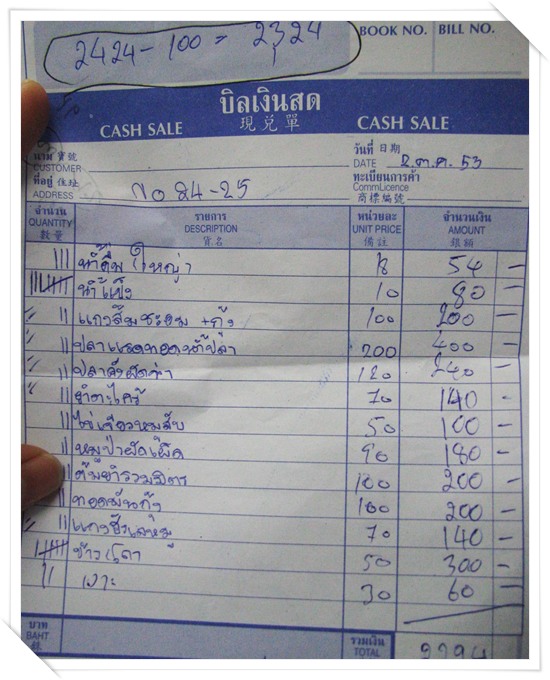 2424 - 100 = 2,324
BOOK NO. BILL NO.
บิลเงินสด
CASH SALE 現兌單 CASH SALE
นาม 寶號
CUSTOMER
วันที่ 日期
DATE 2.ต.ค. 53
ที่อยู่ 住址
ADDRESS No 24-25
ทะเบียนการค้า
Comm.Licence
商標編號
จำนวน QUANTITY 數量 รายการ DESCRIPTION 貨名 หน่วยละ UNIT PRICE 備註 จำนวนเงิน AMOUNT 銀額
||| น้ำดื่มใหญ่ 18 54 -
น้ำแข็ง 10 80 -
|| แกงส้มชะอม + กุ้ง 100 200 -
|| ปลาแรดทอดน้ำปลา 200 400 -
|| ผัดฉ่า 120 240 -
|| ยำตะไคร้ 70 140 -
|| ไข่เจียวหมูสับ 50 100 -
|| หมูป่าผัดเผ็ด 90 180 -
|| ต้มยำรวมมิตร 100 200 -
|| ทอดมันกุ้ง 100 200 -
|| 70 140 -
ข้าวโถ 50 300 -
|| เงาะ 30 60 -
บาท
BAHT
รวมเงิน
TOTAL